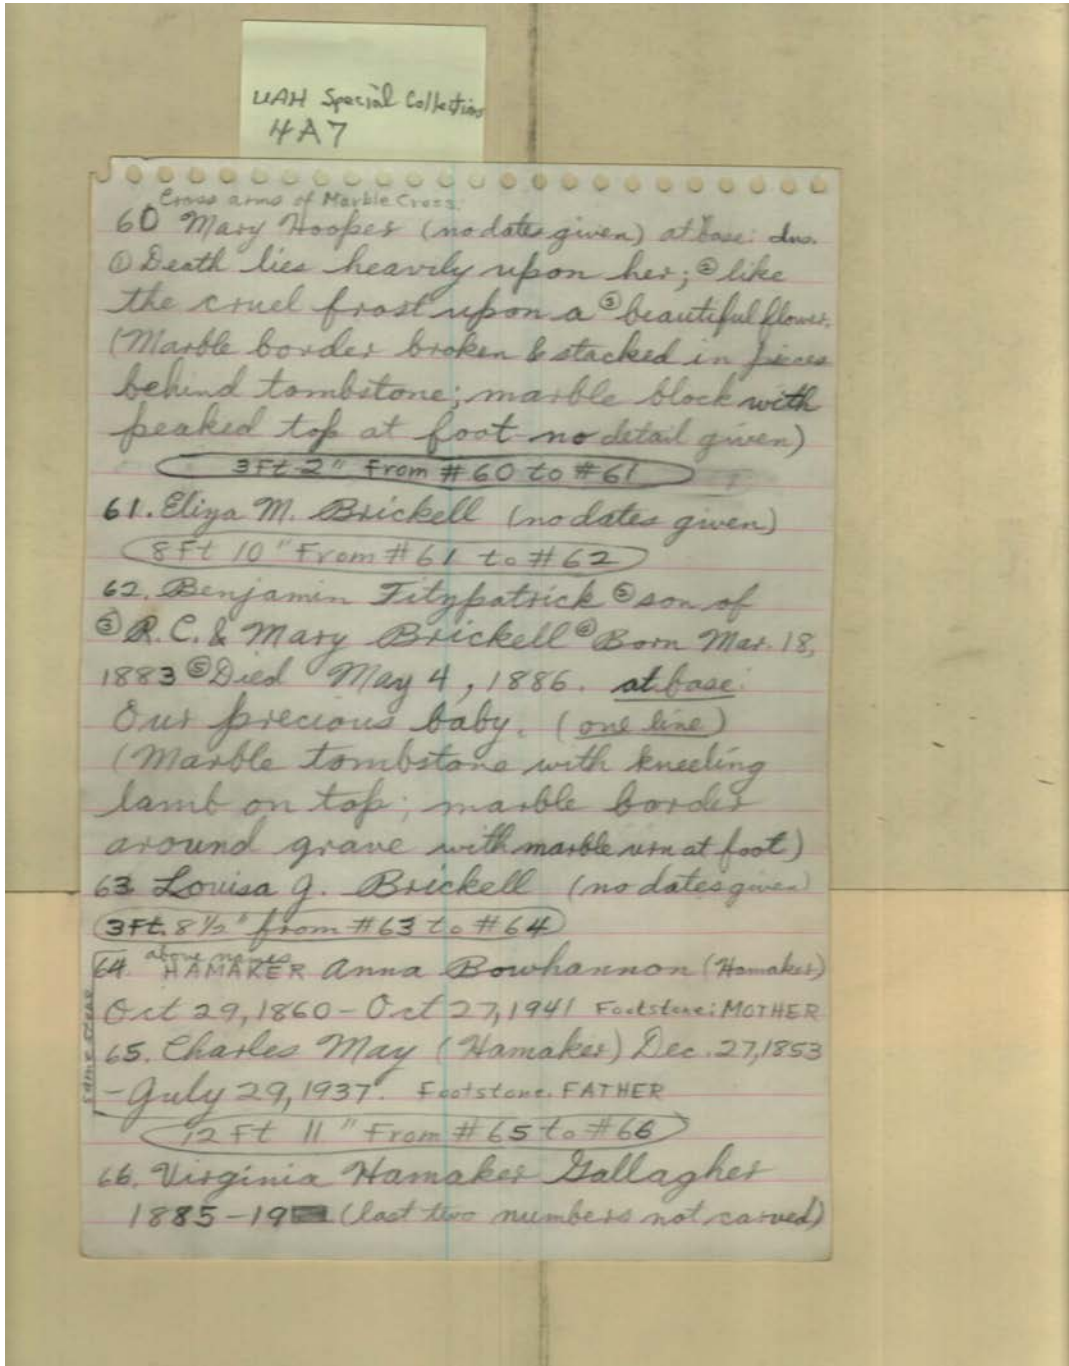 UAH Special Collections
4A7
Cross arms of Marble Cross:
60 Mary Hooper (no dates given) at base:
① Death lies heavily upon her; ② like
the cruel frost upon a ③ beautiful flower.
(Marble border broken & stacked in pieces
behind tombstone; marble block with
peaked top at foot no detail given)
3Ft 2" From #60 to #61
61. Eliza M. Brickell (no dates given)
8Ft 10" From #61 to #62
62. Benjamin Fitzpatrick ② son of
③ R.C. & Mary Brickell ④ Born Mar. 18,
1883 ⑤ Died May 4, 1886. at base:
Our precious baby. (one line)
(Marble tombstone with kneeling
lamb on top; marble border
around grave with marble urn at foot)
63 Louisa J. Brickell (no dates given)
3Ft. 8 1/2" from #63 to #64
above names
64. HAMAKER Anna Bowhannon (Hamaker)
Oct 29, 1860 - Oct 27, 1941 Footstone: MOTHER
same stone
65. Charles May (Hamaker) Dec. 27, 1853
- July 29, 1937. Footstone. FATHER
12 Ft 11" From #65 to #66
66. Virginia Hamaker Gallagher
1885-19 (last two numbers not carved)